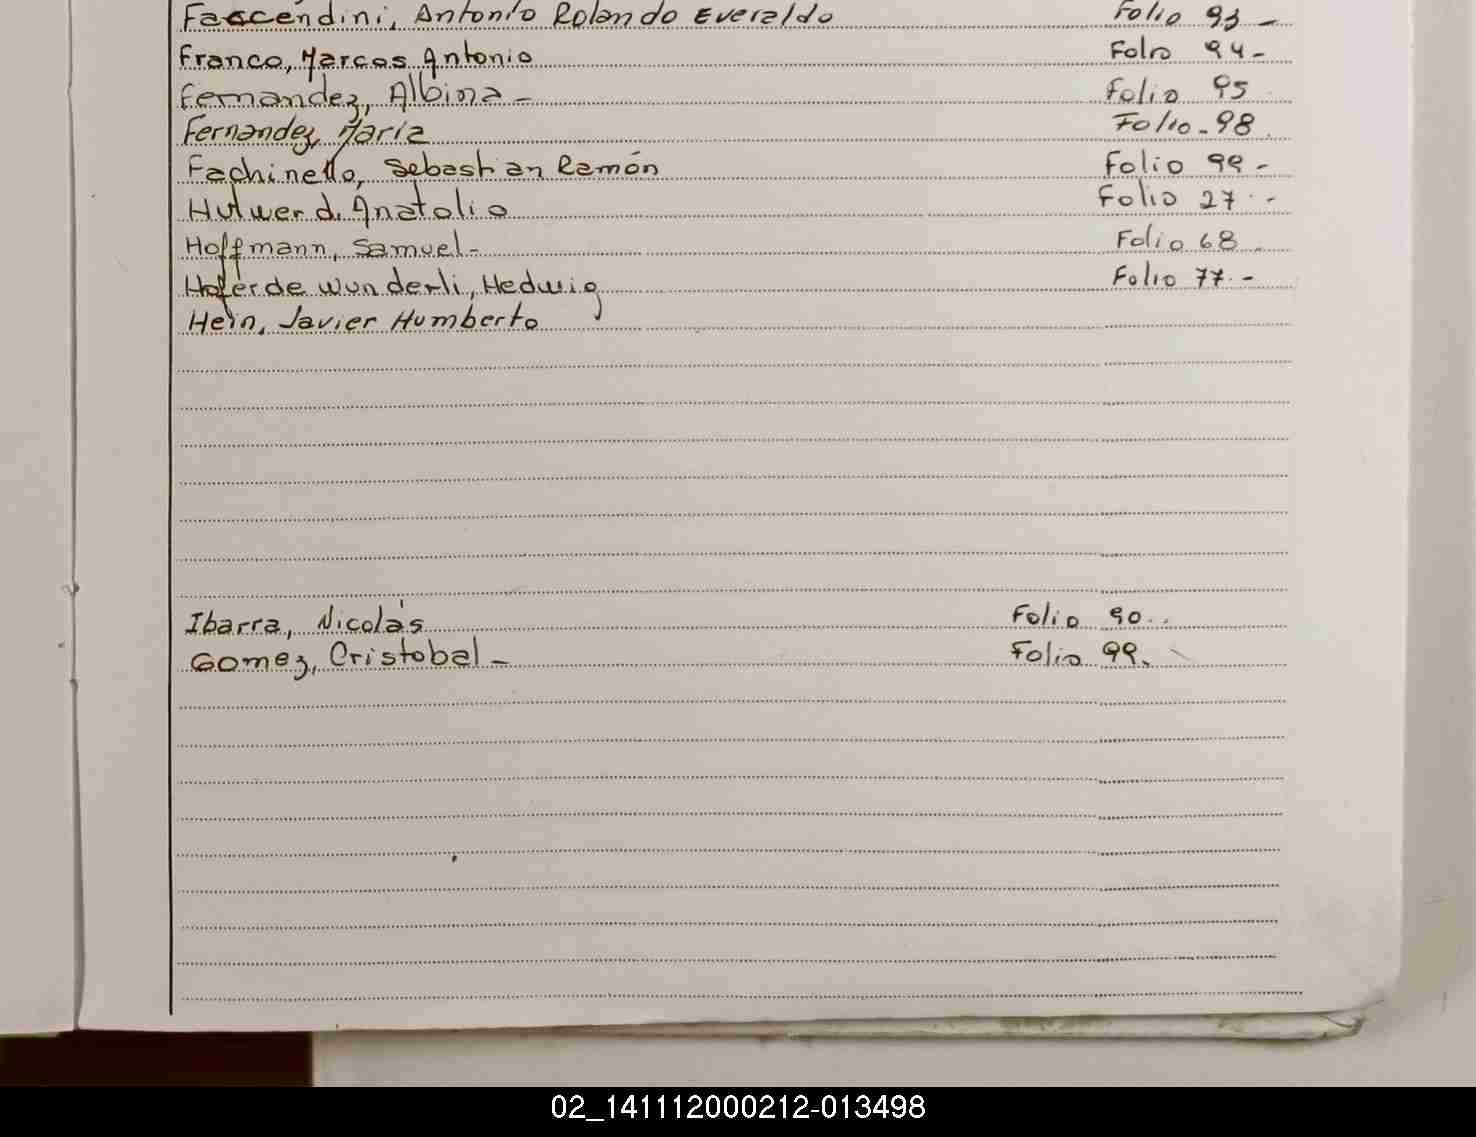 Faccendini, Antonio Rolando Everaldo Folio 93 -
Franco, Marcos Antonio Folio 94 -
Fernandez, Albina - Folio 95
Fernandez, María Folio - 98
Fachinello, Sebastian Ramón Folio 99 -
Hulwerd, Anatolio Folio 27 -
Hoffmann, Samuel - Folio 68
Hofer de Wunderli, Hedwig Folio 77 -
Hein, Javier Humberto
Ibarra, Nicolás Folio 90
Gomez, Cristobal - Folio 99.
02_141112000212-013498